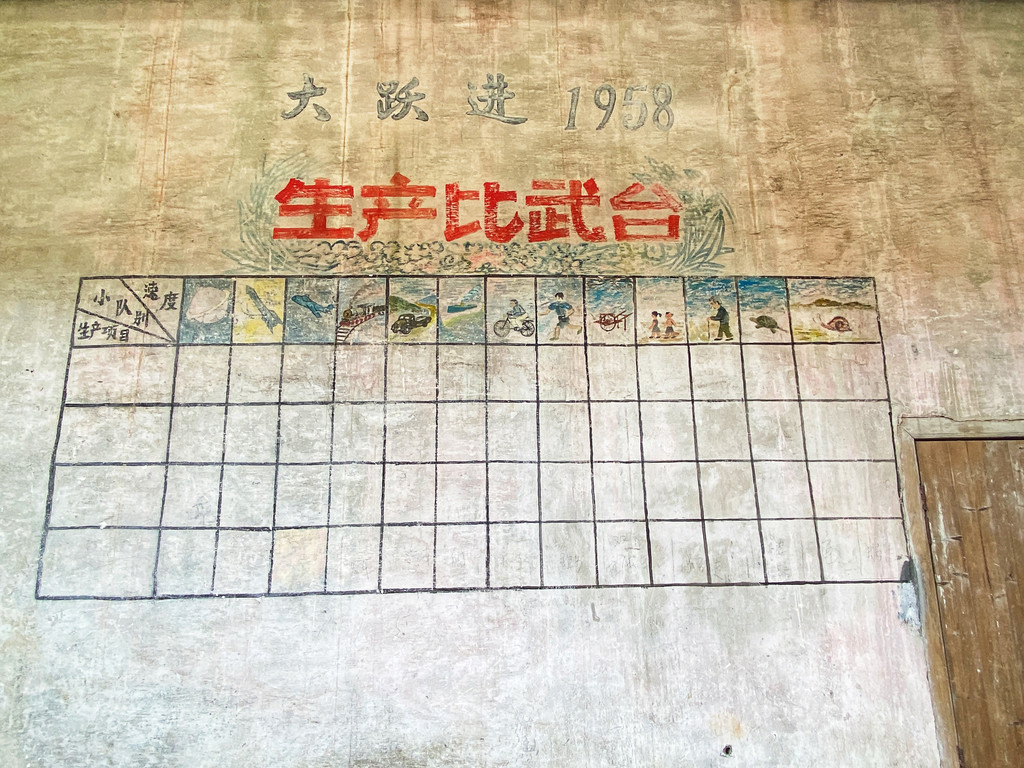 大跃进 1958
生产比武台
速度
小队别
生产项目